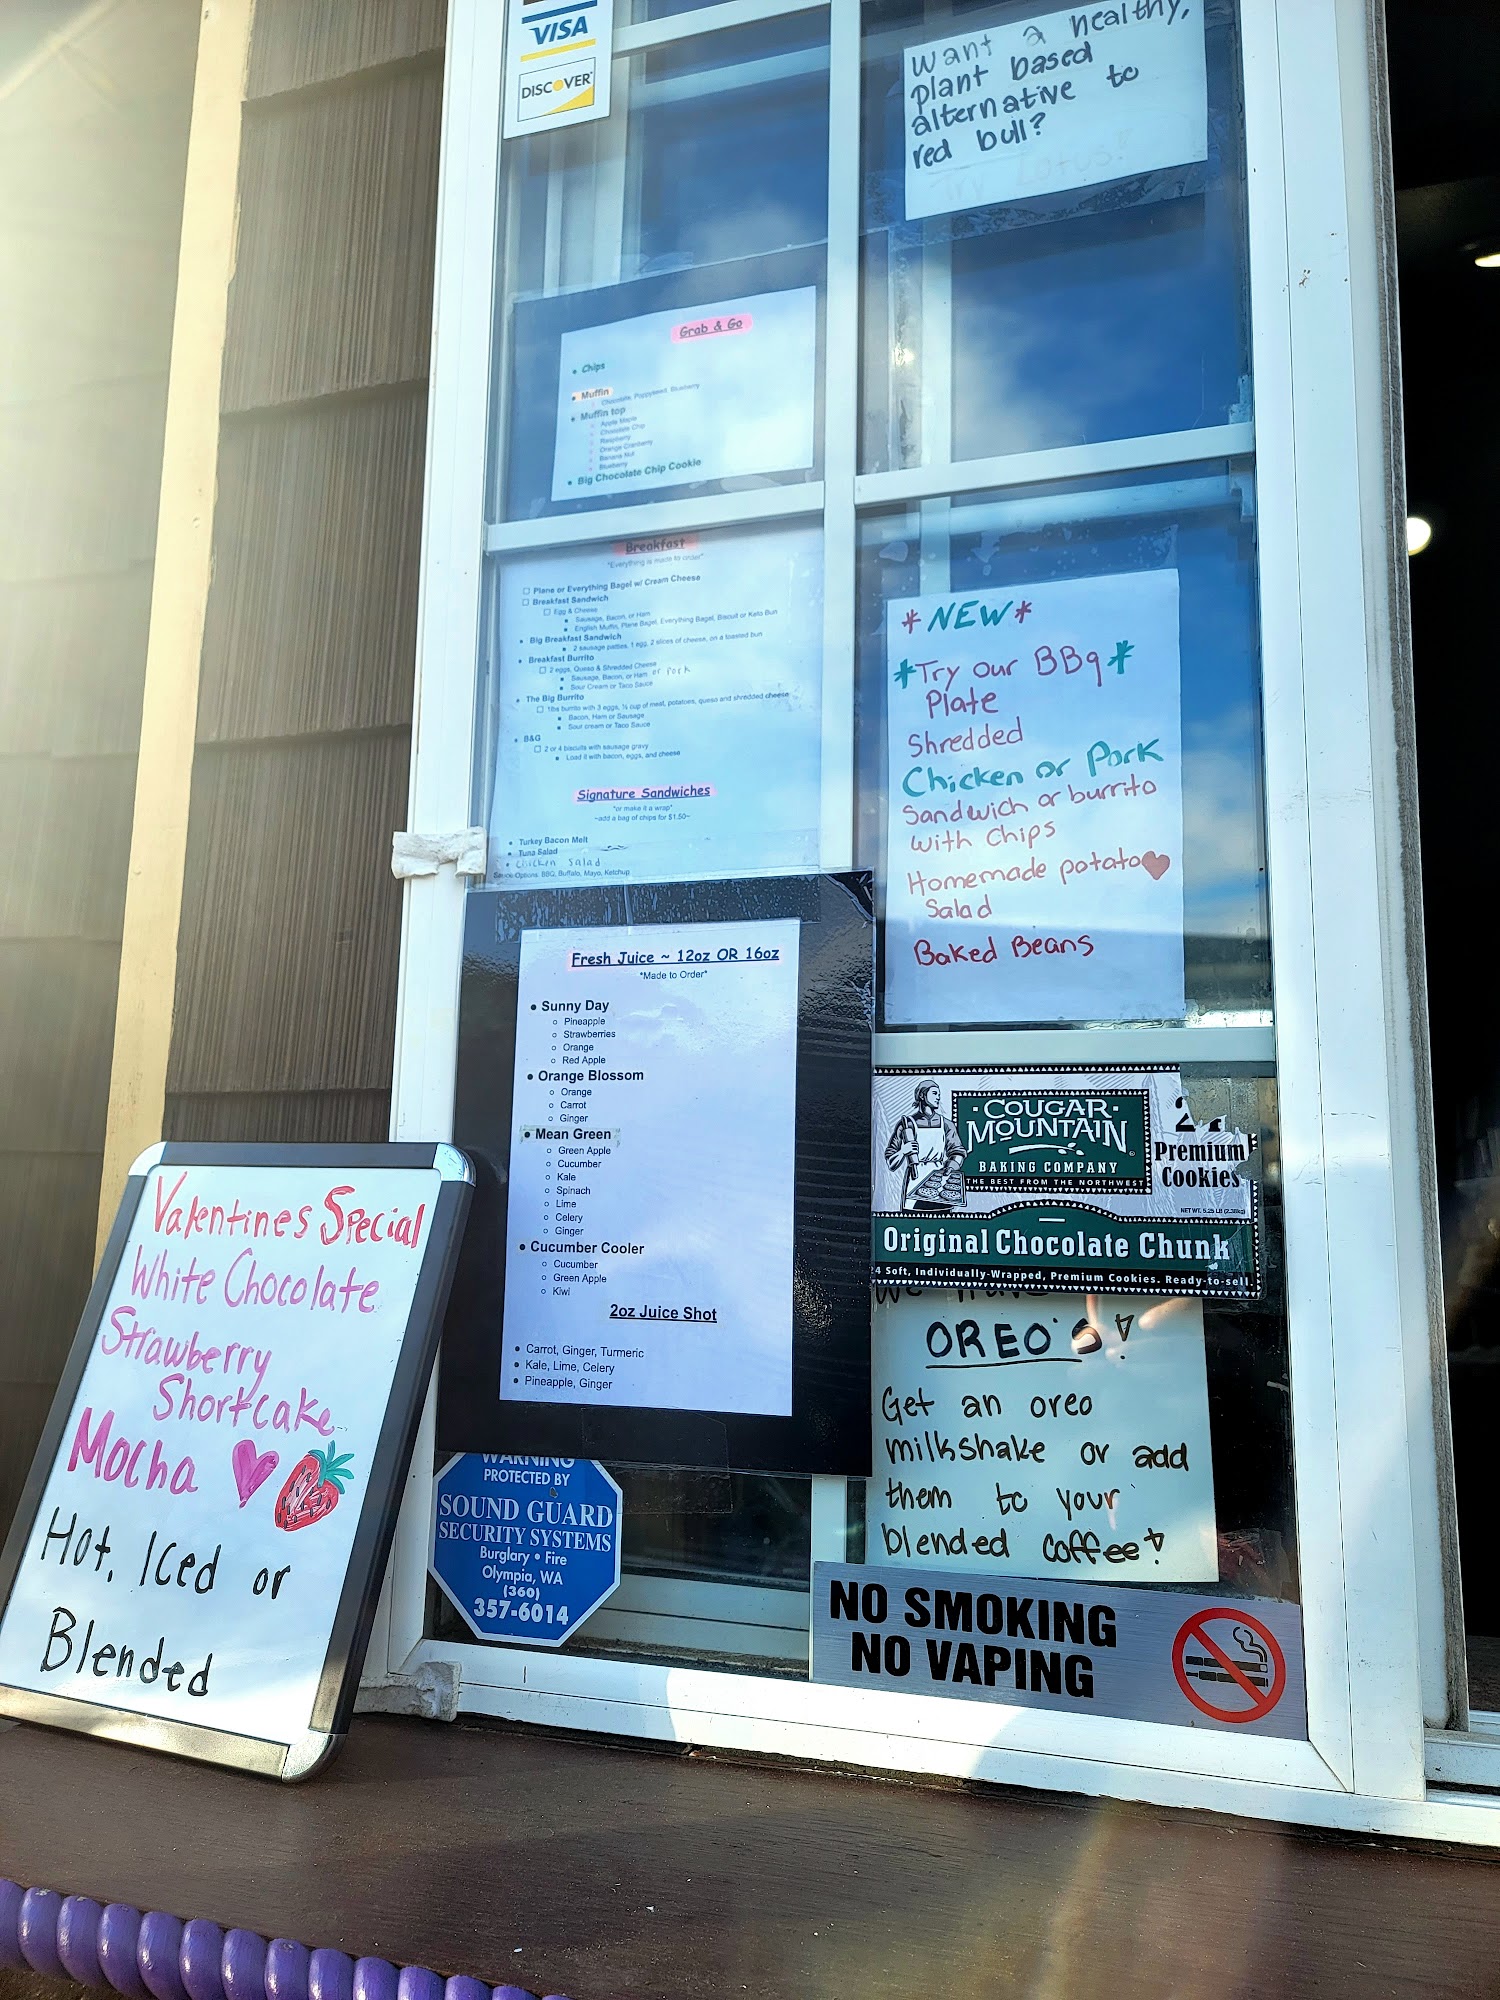 VISA
DISCOVER
Want a healthy,
plant based
alternative to
red bull?
Try Lotus!
Grab & Go
• Chips
• Muffin
Chocolate, Poppyseed, Blueberry
• Muffin top
Apple Maple
Chocolate Chip
Raspberry
Orange Cranberry
Banana Nut
Blueberry
• Big Chocolate Chip Cookie
Breakfast
*Everything is made to order*
Plane or Everything Bagel w/ Cream Cheese
Breakfast Sandwich
Egg & Cheese
Sausage, Bacon, or Ham
English Muffin, Plane Bagel, Everything Bagel, Biscuit or Keto Bun
• Big Breakfast Sandwich
2 sausage patties, 1 egg, 2 slices of cheese, on a toasted bun
• Breakfast Burrito
2 eggs, Queso & Shredded Cheese
Sausage, Bacon, or Ham or Pork
Sour Cream or Taco Sauce
• The Big Burrito
1lbs burrito with 3 eggs, ½ cup of meat, potatoes, queso and shredded cheese
Bacon, Ham or Sausage
Sour cream or Taco Sauce
• B&G
2 or 4 biscuits with sausage gravy
Load it with bacon, eggs, and cheese
Signature Sandwiches
*or make it a wrap*
~add a bag of chips for $1.50~
• Turkey Bacon Melt
• Tuna Salad
• Chicken Salad
Sauce Options: BBQ, Buffalo, Mayo, Ketchup
*NEW*
*Try our BBq*
Plate
Shredded
Chicken or Pork
Sandwich or burrito
with Chips
Homemade potato
Salad
Baked Beans
Fresh Juice ~ 12oz OR 16oz
*Made to Order*
• Sunny Day
Pineapple
Strawberries
Orange
Red Apple
• Orange Blossom
Orange
Carrot
Ginger
• Mean Green
Green Apple
Cucumber
Kale
Spinach
Lime
Celery
Ginger
• Cucumber Cooler
Cucumber
Green Apple
Kiwi
2oz Juice Shot
• Carrot, Ginger, Turmeric
• Kale, Lime, Celery
• Pineapple, Ginger
COUGAR
MOUNTAIN
BAKING COMPANY
THE BEST FROM THE NORTHWEST
Premium
Cookies
NET WT. 5.25 LB
Original Chocolate Chunk
24 Soft, Individually-Wrapped, Premium Cookies. Ready-to-sell.
We have
OREO'S!
Get an oreo
milkshake or add
them to your
blended coffee!
Valentines Special
White Chocolate
Strawberry
Shortcake
Mocha
Hot, Iced or
Blended
WARNING
PROTECTED BY
SOUND GUARD
SECURITY SYSTEMS
Burglary • Fire
Olympia, WA
(360)
357-6014
NO SMOKING
NO VAPING